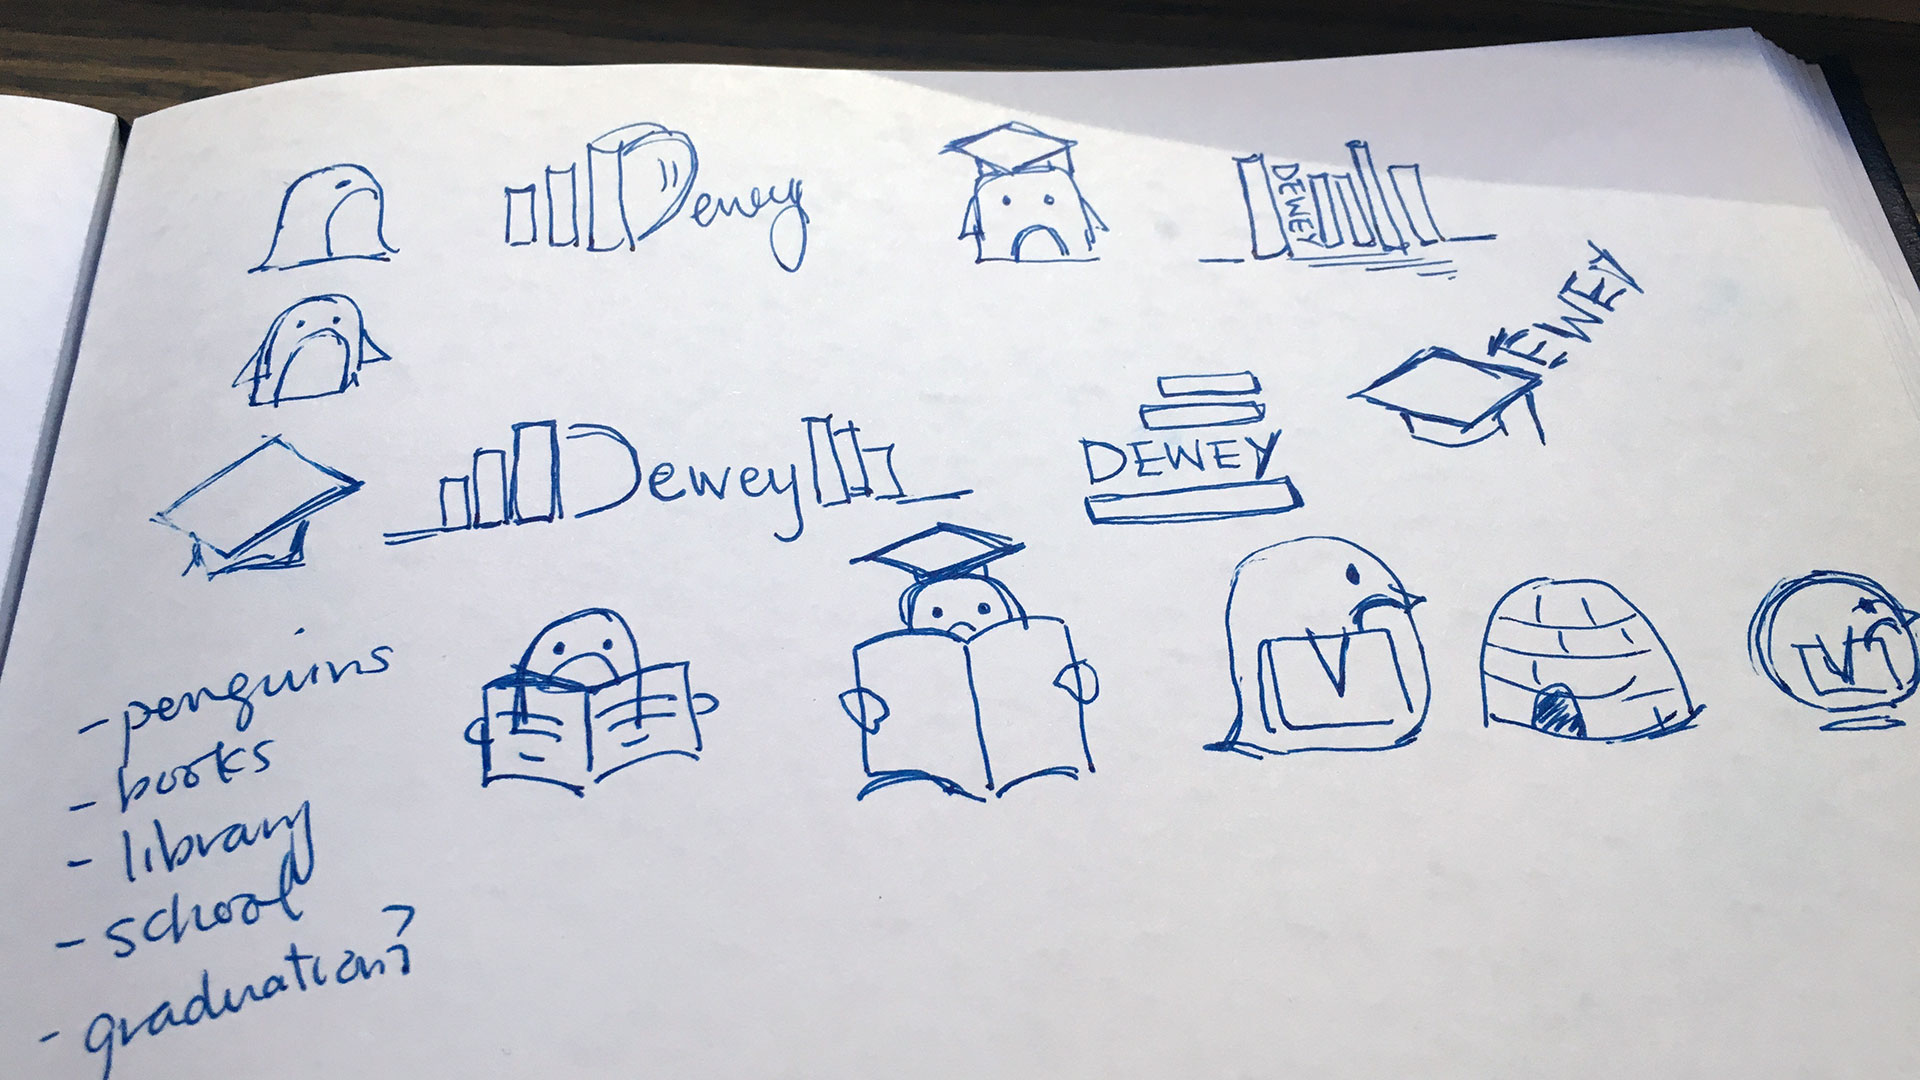 Dewey
DEWEY
EWEY
Dewey
DEWEY
- penguins
- books
- library
- school
- graduation?